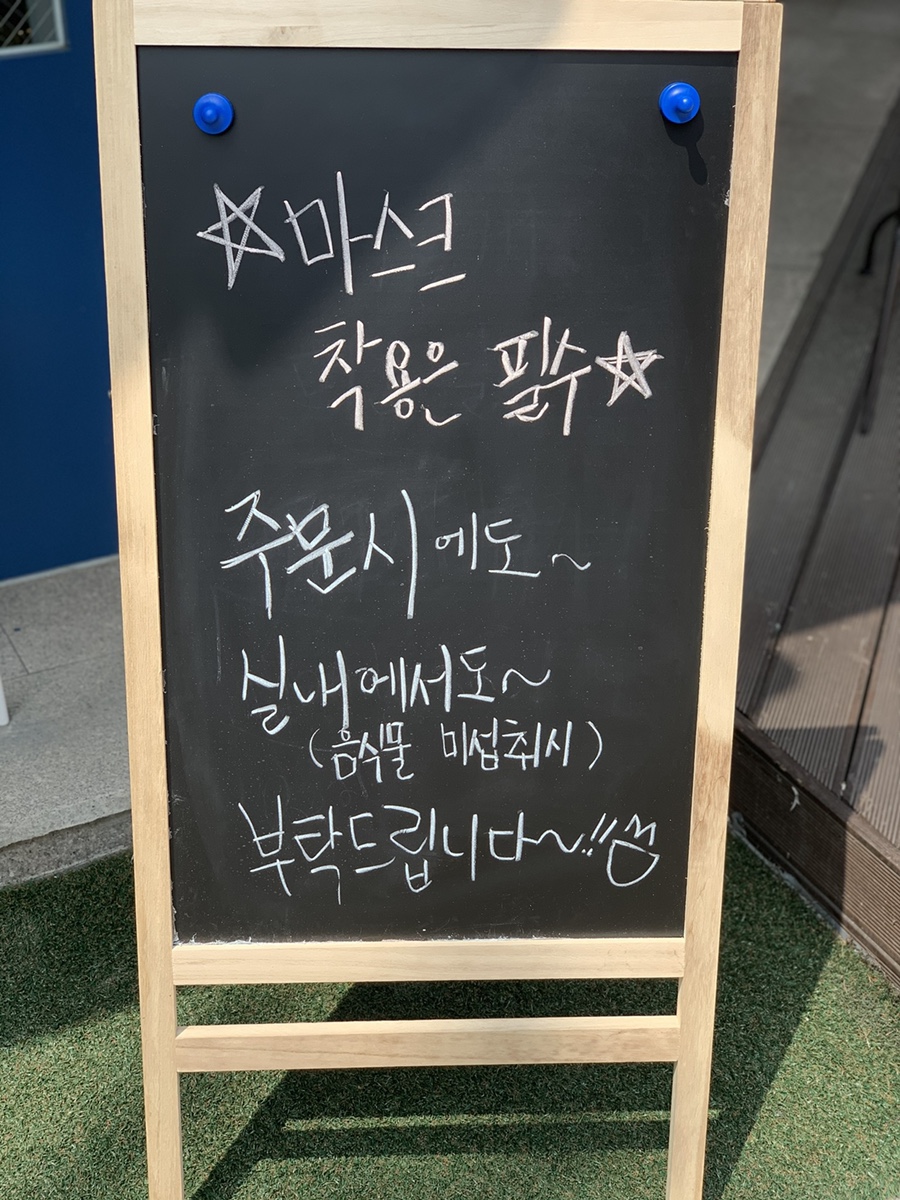 ☆마스크
착용은 필수☆
주문시에도~
실내에서도~
(음식물 미섭취시)
부탁드립니다~!!